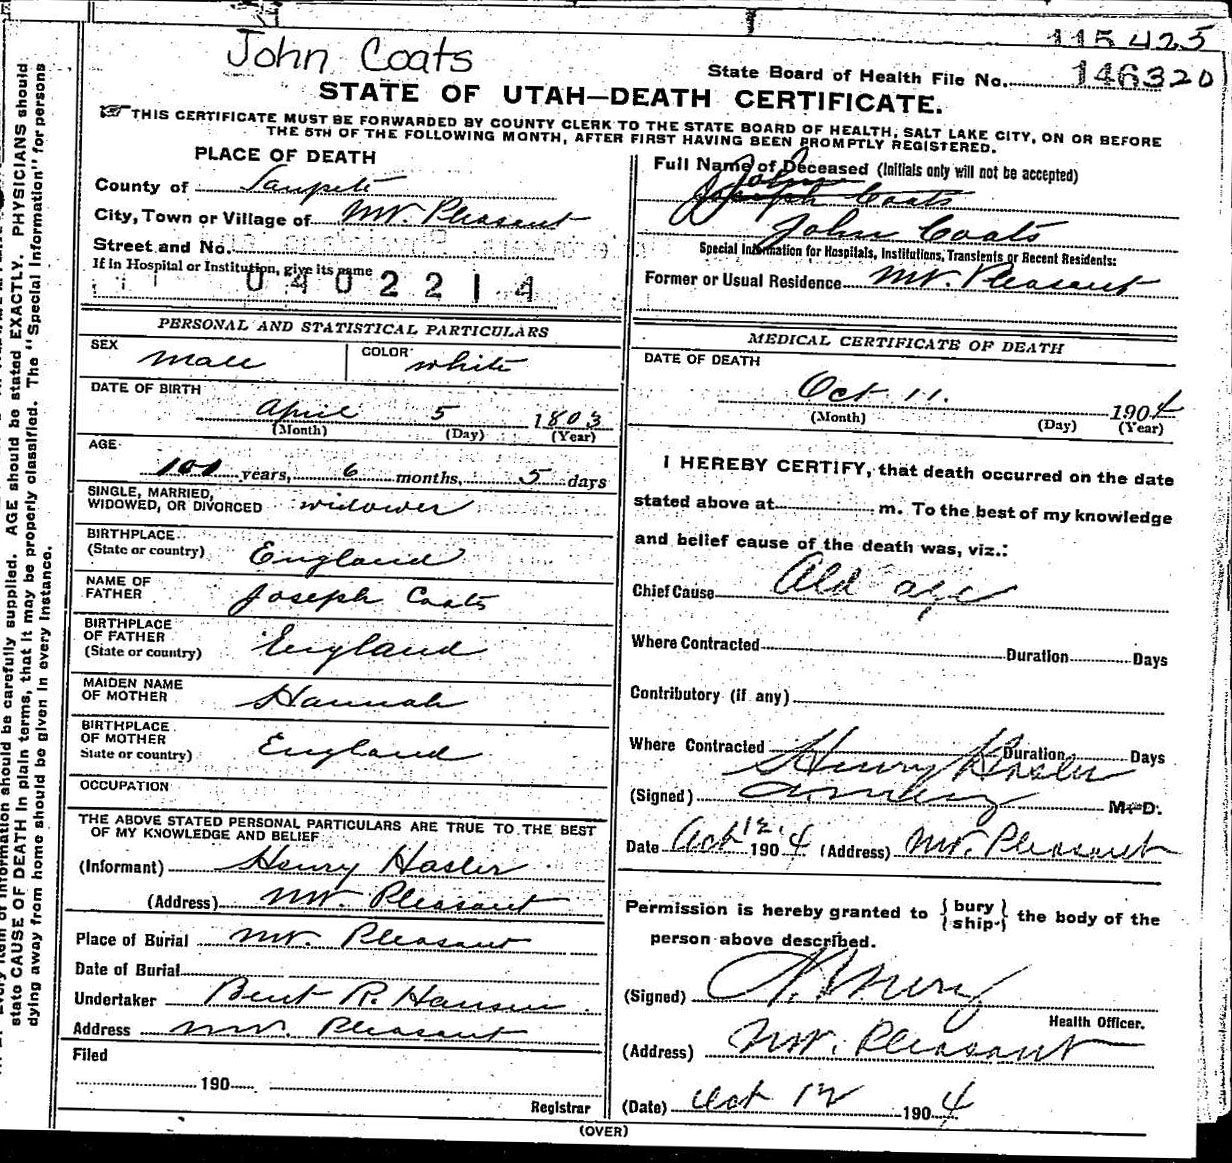 115425
John Coats
State Board of Health File No. 146320
STATE OF UTAH—DEATH CERTIFICATE.
THIS CERTIFICATE MUST BE FORWARDED BY COUNTY CLERK TO THE STATE BOARD OF HEALTH, SALT LAKE CITY, ON OR BEFORE
THE 5TH OF THE FOLLOWING MONTH, AFTER FIRST HAVING BEEN PROMPTLY REGISTERED.
PLACE OF DEATH
County of Sanpete
City, Town or Village of Mt. Pleasant
Street and No.
If in Hospital or Institution, give its name
0402214
Full Name of Deceased (Initials only will not be accepted)
John
Joseph Coats
John Coats
Special Information for Hospitals, Institutions, Transients or Recent Residents:
Former or Usual Residence Mt. Pleasant
PERSONAL AND STATISTICAL PARTICULARS
SEX male COLOR white
DATE OF BIRTH
April 5 1803
(Month) (Day) (Year)
AGE
101 years, 6 months, 5 days
SINGLE, MARRIED,
WIDOWED, OR DIVORCED widower
BIRTHPLACE
(State or country) England
NAME OF
FATHER Joseph Coats
BIRTHPLACE
OF FATHER
(State or country) England
MAIDEN NAME
OF MOTHER Hannah
BIRTHPLACE
OF MOTHER
State or country) England
OCCUPATION
THE ABOVE STATED PERSONAL PARTICULARS ARE TRUE TO THE BEST
OF MY KNOWLEDGE AND BELIEF
(Informant) Henry Hasler
(Address) Mt. Pleasant
Place of Burial Mt. Pleasant
Date of Burial
Undertaker Bent R. Hansen
Address Mt. Pleasant
Filed
190
Registrar
MEDICAL CERTIFICATE OF DEATH
DATE OF DEATH
Oct 11. 1904
(Month) (Day) (Year)
I HEREBY CERTIFY, that death occurred on the date
stated above at m. To the best of my knowledge
and belief cause of the death was, viz.:
Chief Cause Old age
Where Contracted Duration Days
Contributory (if any)
Where Contracted Duration Days
Henry Hasler
(Signed) M.D.
Date Oct 12. 1904 (Address) Mt. Pleasant
Permission is hereby granted to {bury
ship} the body of the
person above described.
(Signed)
Health Officer.
(Address) Mt. Pleasant
(Date) Oct 12 1904
(OVER)
stated EXACTLY. PHYSICIANS should
state CAUSE OF DEATH in plain terms, that it may be properly classified. The "Special Information" for persons
dying away from home should be given in every instance.